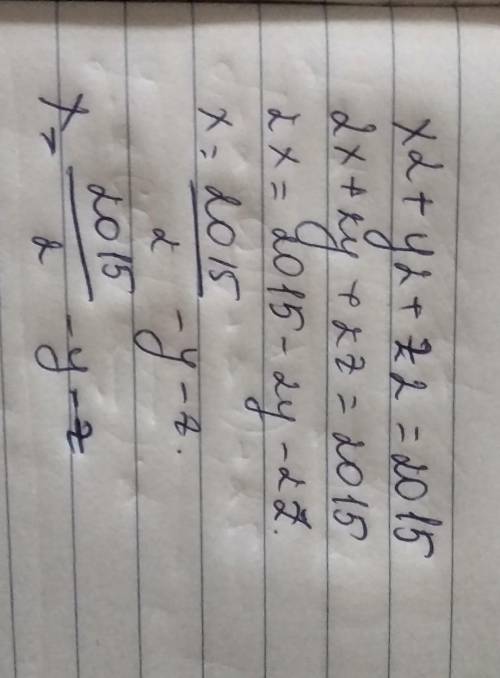 x2 + y2 + z2 = 2015
2x + 2y + 2z = 2015
2x = 2015 - 2y - 2z.
x = 2015/2 - y - z.
x = 2015/2 - y - z